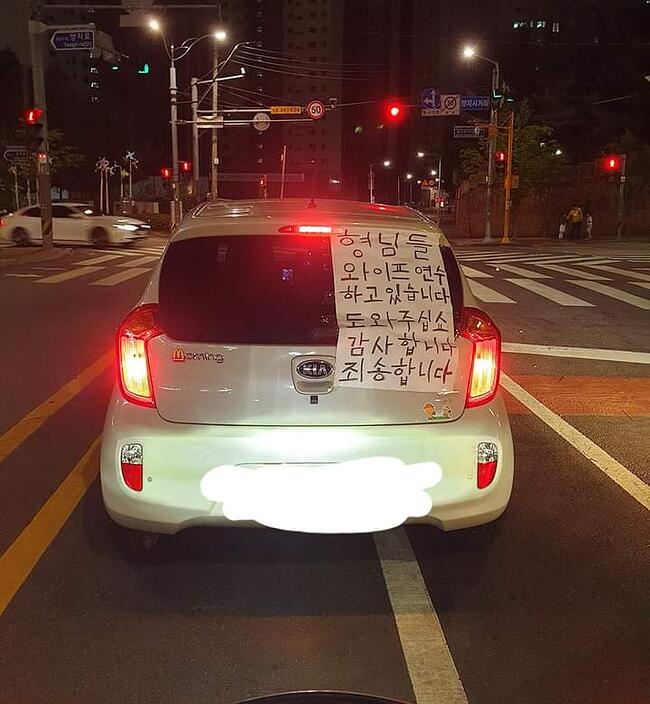 50
형님들
와이프 연수
하고 있습니다
도와주십쇼
감사합니다
죄송합니다
Morning
KIA